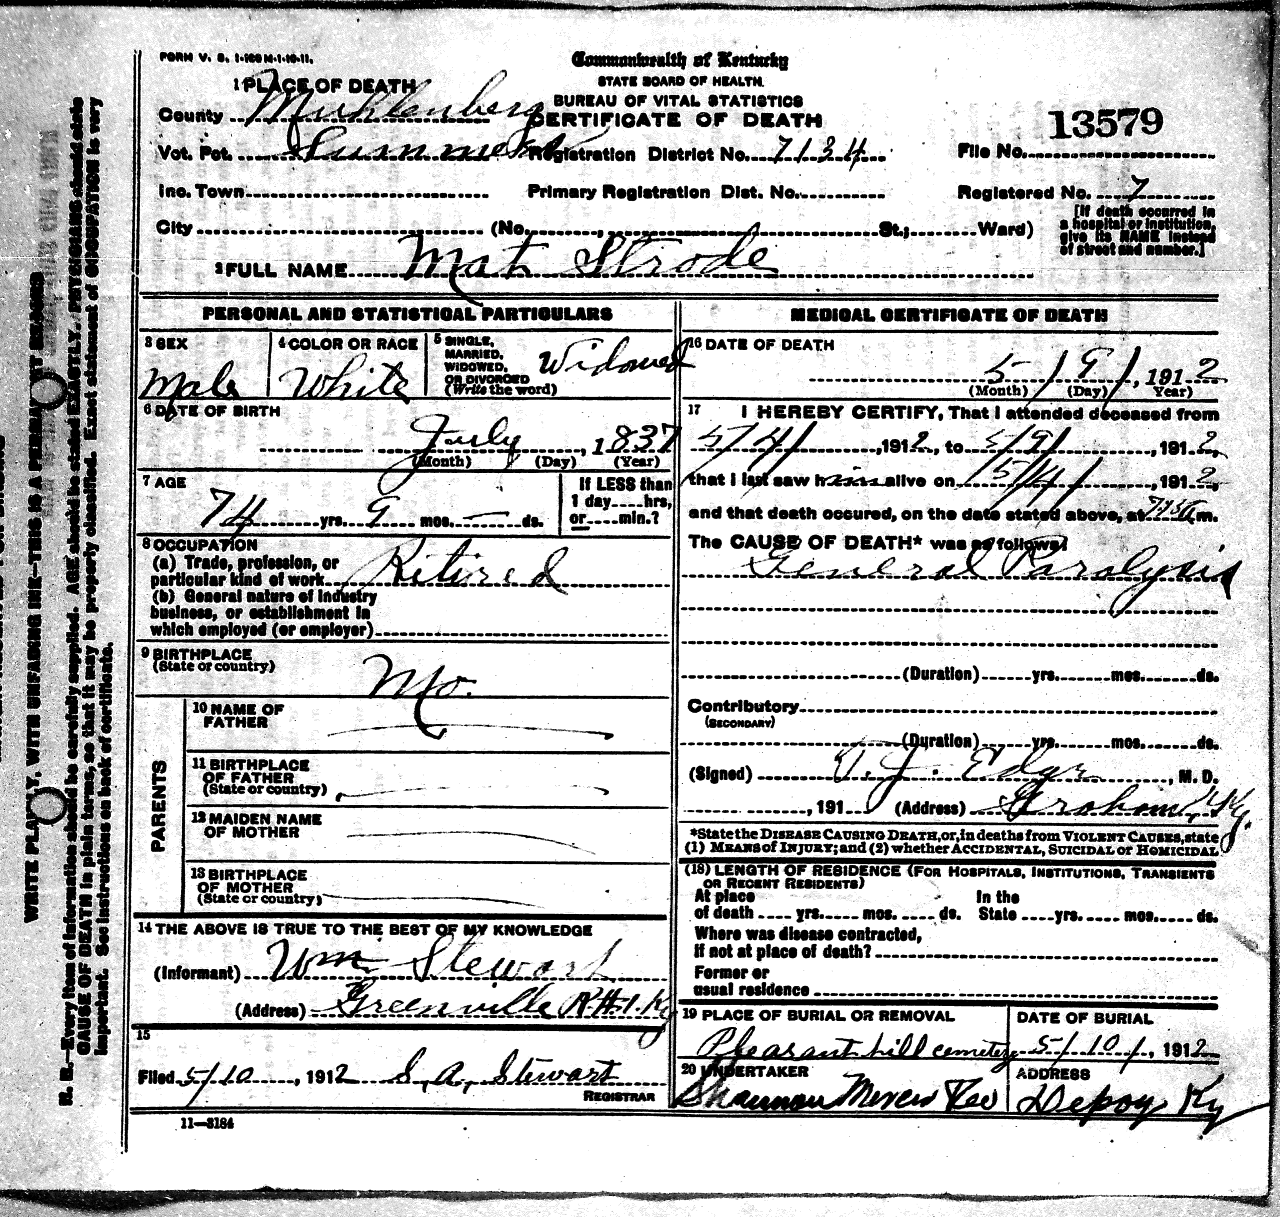 FORM V. S. 1-100 M-1-10-11.
Commonwealth of Kentucky
STATE BOARD OF HEALTH.
BUREAU OF VITAL STATISTICS
CERTIFICATE OF DEATH
1 PLACE OF DEATH
County Muhlenberg
13579
Vot. Pct. Summers Registration District No. 7134 File No.
Inc. Town Primary Registration Dist. No. Registered No. 7
City (No. , St.; Ward)
[If death occurred in
a hospital or institution,
give its NAME instead
of street and number.]
2 FULL NAME Mat Strode
PERSONAL AND STATISTICAL PARTICULARS
3 SEX
Male
4 COLOR OR RACE
White
5 SINGLE,
MARRIED,
WIDOWED,
OR DIVORCED
(Write the word)
Widowed
6 DATE OF BIRTH
July , 1837
(Month) (Day) (Year)
7 AGE
74 yrs. 9 mos. — ds.
If LESS than
1 day hrs,
or min.?
8 OCCUPATION
(a) Trade, profession, or
particular kind of work Ritired
(b) General nature of industry
business, or establishment in
which employed (or employer)
9 BIRTHPLACE
(State or country)
Mo.
PARENTS
10 NAME OF
FATHER
11 BIRTHPLACE
OF FATHER
(State or country)
12 MAIDEN NAME
OF MOTHER
13 BIRTHPLACE
OF MOTHER
(State or country)
14 THE ABOVE IS TRUE TO THE BEST OF MY KNOWLEDGE
(Informant) Wm Stewart
(Address) Greenville R#1. Ky
15
Filed 5/10 , 1912 S. A. Stewart
REGISTRAR
11—3184
MEDICAL CERTIFICATE OF DEATH
16 DATE OF DEATH
5/9/ , 1912
(Month) (Day) Year)
17 I HEREBY CERTIFY, That I attended deceased from
5/4/ , 1912, to 5/9/ , 1912,
that I last saw him alive on 5/4/ , 1912,
and that death occured, on the date stated above, at m.
The CAUSE OF DEATH* was as follows:
General Paralysis
(Duration) yrs. mos. ds.
Contributory
(SECONDARY)
(Duration) yrs. mos. ds.
(Signed) T. J. Edgar , M. D.
, 191 (Address) Graham, Ky.
*State the DISEASE CAUSING DEATH, or, in deaths from VIOLENT CAUSES, state
(1) MEANS of INJURY; and (2) whether ACCIDENTAL, SUICIDAL or HOMICIDAL
(18) LENGTH OF RESIDENCE (FOR HOSPITALS, INSTITUTIONS, TRANSIENTS
OR RECENT RESIDENTS)
At place In the
of death yrs. mos. ds. State yrs. mos. ds.
Where was disease contracted,
if not at place of death?
Former or
usual residence
19 PLACE OF BURIAL OR REMOVAL
Pleasant hill cemetery
DATE OF BURIAL
5/10/, 1912
20 UNDERTAKER
Shannon
ADDRESS
Depoy Ky
N. B.—Every item of information should be carefully supplied. AGE should be stated EXACTLY. PHYSICIANS should state
CAUSE OF DEATH in plain terms, so that it may be properly classified. Exact statement of OCCUPATION is very
important. See instructions on back of certificate.
WRITE PLAINLY, WITH UNFADING INK—THIS IS A PERMANENT RECORD